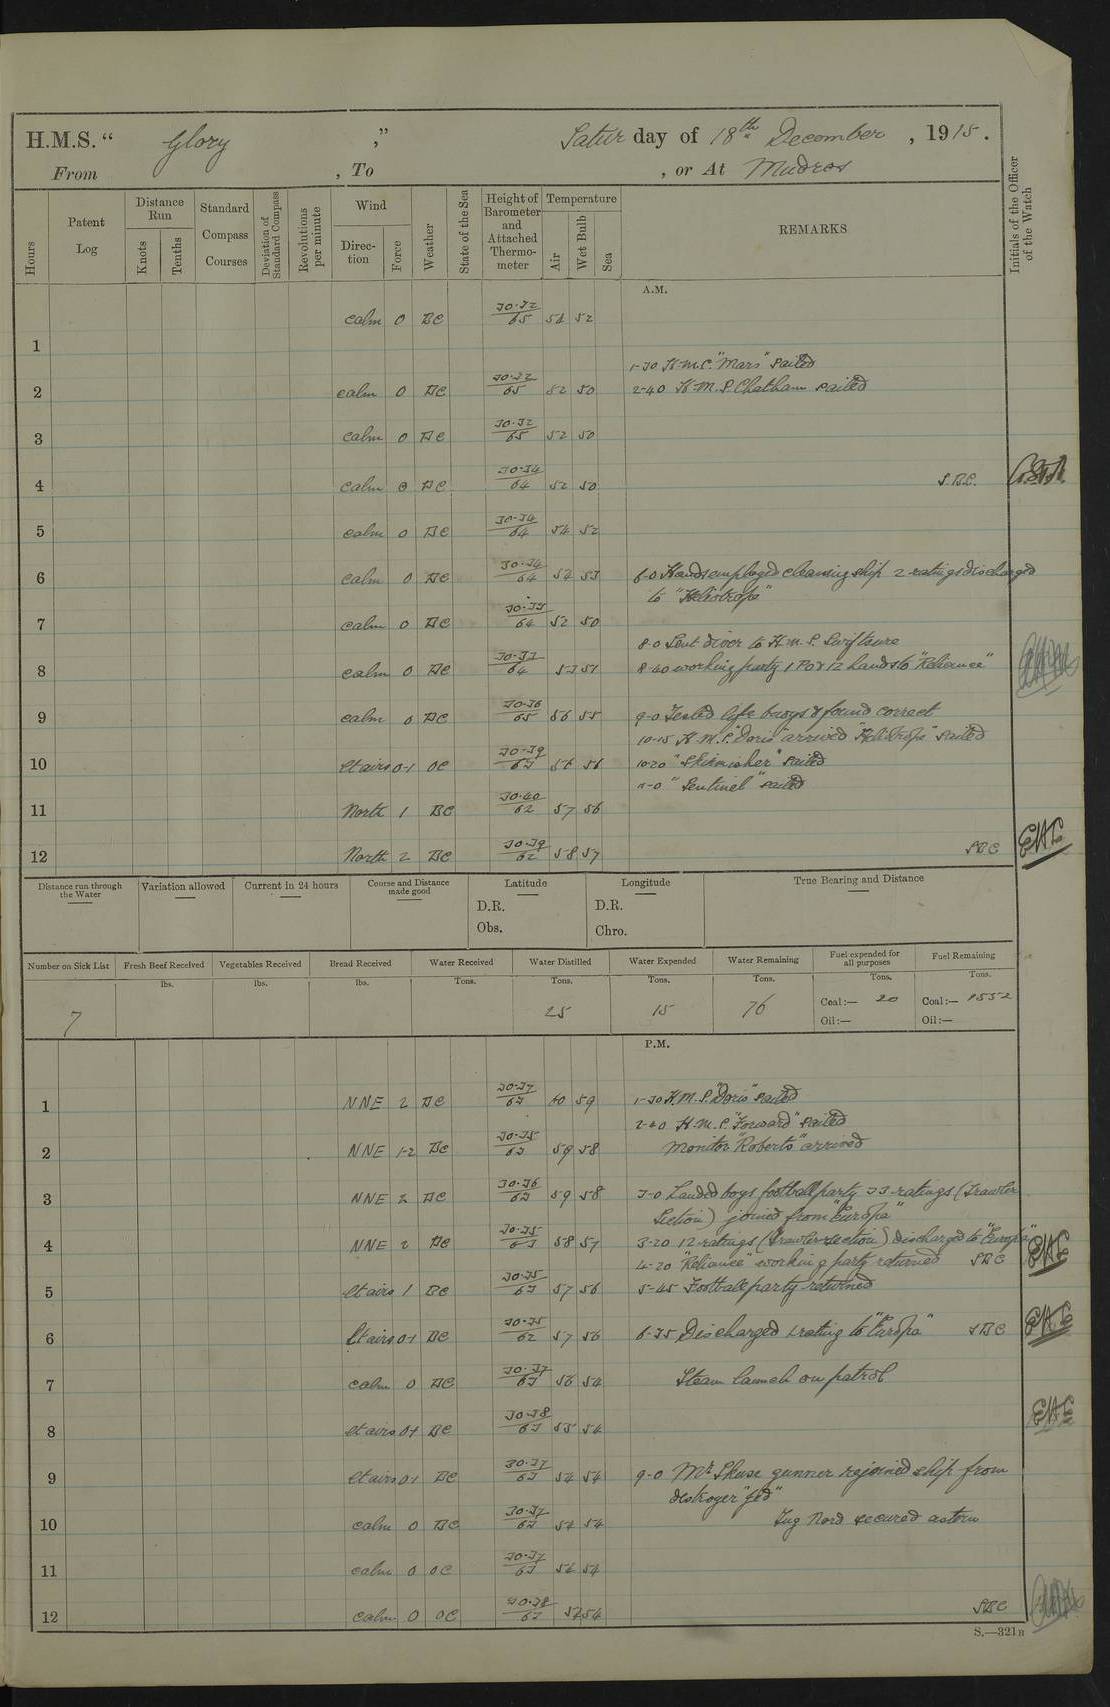 H.M.S. “ Glory ” Satur day of 18th December , 1915 .
From , To , or At Mudros
Hours
Patent Log
Distance Run
Knots
Tenths
Standard Compass Courses
Deviation of Standard Compass
Revolutions per minute
Wind
Direction
Force
Weather
State of the Sea
Height of Barometer and Attached Thermometer
Temperature
Air
Wet Bulb
Sea
REMARKS
Initials of the Officer of the Watch
A.M.
1 calm 0 BC 30·32/65 54 52
1-30 H.M.S. "Mars" sailed
2 calm 0 BC 30·32/65 52 50 2-40 H.M.S. Chatham sailed
3 calm 0 BC 30·32/65 52 50
4 calm 0 BC 30·34/64 52 50 SBC
5 calm 0 BC 30·34/64 54 52
6 calm 0 BC 30·34/64 54 53 6-0 Hands employed cleaning ship 2 ratings discharged
to "Heliotrope"
7 calm 0 BC 30·35/64 52 50
8-0 Sent diver to H.M.S. Swiftsure
8 calm 0 BC 30·37/64 53 51 8-40 working party 1 PO & 12 hands to "Reliance"
9 calm 0 BC 30·36/65 56 55 9-0 Tested life buoys & found correct
10-15 H.M.S. "Doris" arrived "Heliotrope" sailed
10 lt airs 0-1 OC 30·39/63 56 56 10-20 "Skirmisher" sailed
11-0 "Sentinel" sailed
11 North 1 BC 30·40/62 57 56
12 North 2 BC 30·39/62 58 57 SBC
Distance run through the Water
Variation allowed
Current in 24 hours
Course and Distance made good
Latitude
D.R.
Obs.
Longitude
D.R.
Chro.
True Bearing and Distance
Number on Sick List
7
Fresh Beef Received
lbs.
Vegetables Received
lbs.
Bread Received
lbs.
Water Received
Tons.
Water Distilled
Tons.
25
Water Expended
Tons.
15
Water Remaining
Tons.
76
Fuel expended for all purposes
Tons.
Coal:— 20
Oil:—
Fuel Remaining
Tons.
Coal:— 1552
Oil:—
P.M.
1 NNE 2 BC 30·37/63 60 59 1-30 H.M.S. "Doris" sailed
2-40 H.M.S. "Forward" sailed
2 NNE 1-2 BC 30·35/63 59 58 Monitor "Roberts" arrived
3 NNE 2 BC 30·36/63 59 58 3-0 Landed boys football party 33 ratings (Trawler
Section) joined from "Europa"
4 NNE 2 BC 30·35/63 58 57 3-20 12 ratings (Trawler section) discharged to "Europa"
4-20 "Reliance" working party returned SBC
5 lt airs 1 BC 30·35/63 57 56 5-45 Football party returned
6 lt airs 0-1 BC 30·35/62 57 56 6-35 Discharged 1 rating to "Europa" SBC
7 calm 0 BC 30·37/63 56 54 Steam launch on patrol
8 lt airs 0-1 BC 30·38/63 55 54
9 lt airs 0-1 BC 30·37/63 54 54 9-0 Mr Skuse gunner rejoined ship from
destroyer "Jed"
10 calm 0 BC 30·37/63 54 54 Tug Nord secured astern
11 calm 0 OC 30·37/63 54 54
12 calm 0 OC 30·38/63 54 54 SBC
S.—321B